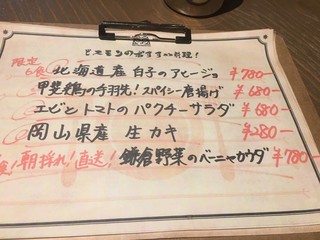 ビストロのおすすめ料理!
限定5食 北海道産 白子のアヒージョ ¥780-
甲斐鶏の手羽先!スパイシー唐揚げ ¥680-
エビとトマトのパクチーサラダ ¥680-
岡山県産 生カキ ¥280-
朝採れ!直送!鎌倉野菜のバーニャカウダ ¥780-